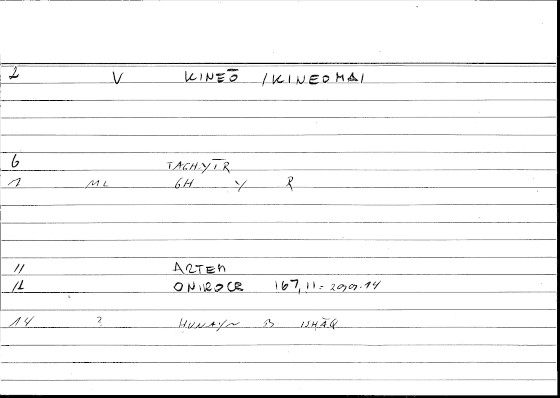 2 V KINEŌ / KINEOMAI
6 TAGHYĪR
1 ML GH Y R
11 ARTEM
12 ONIROCR 167,11 =
14 ? HUNAYN B ISHĀQ